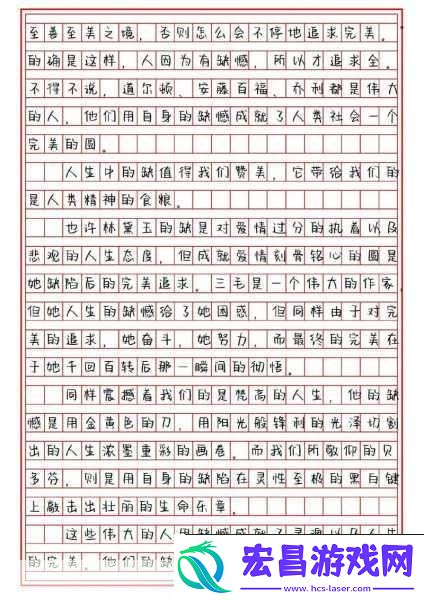 至善至美之境，否则怎么会不停地追求完美。
的确是这样，人因为有缺憾，所以才追求全。
不得不说，道尔顿、安藤百福、乔利都是伟大
的人，他们用自身的缺憾成就了人类社会一个
完美的圆。
人生中的缺值得我们赞美，它带给我们的
是人类精神的食粮。
也许林黛玉的缺是对爱情过分的执着以及
悲观的人生态度，但成就爱情刻骨铭心的圆是
她缺陷后的完美追求。三毛是一个伟大的作家，
但她人生的缺憾给了她困惑，但同样由于对完
美的追求，她奋斗，她努力，而最终的完美在
于她千回百转后那一瞬间的彻悟。
同样震撼着我们的是梵高的人生，他的缺
憾是用金黄色的刀，用阳光般锋利的光泽切割
出的人生浓墨重彩的画卷。而我们所敬仰的贝
多芬，则是用自身的缺陷在灵性至极的黑白键
上敲击出壮丽的生命乐章。
这些伟大的人用缺憾成就了灵魂以及人生
的完美。他们的缺
宏昌游戏网
www.hcs-laser.com